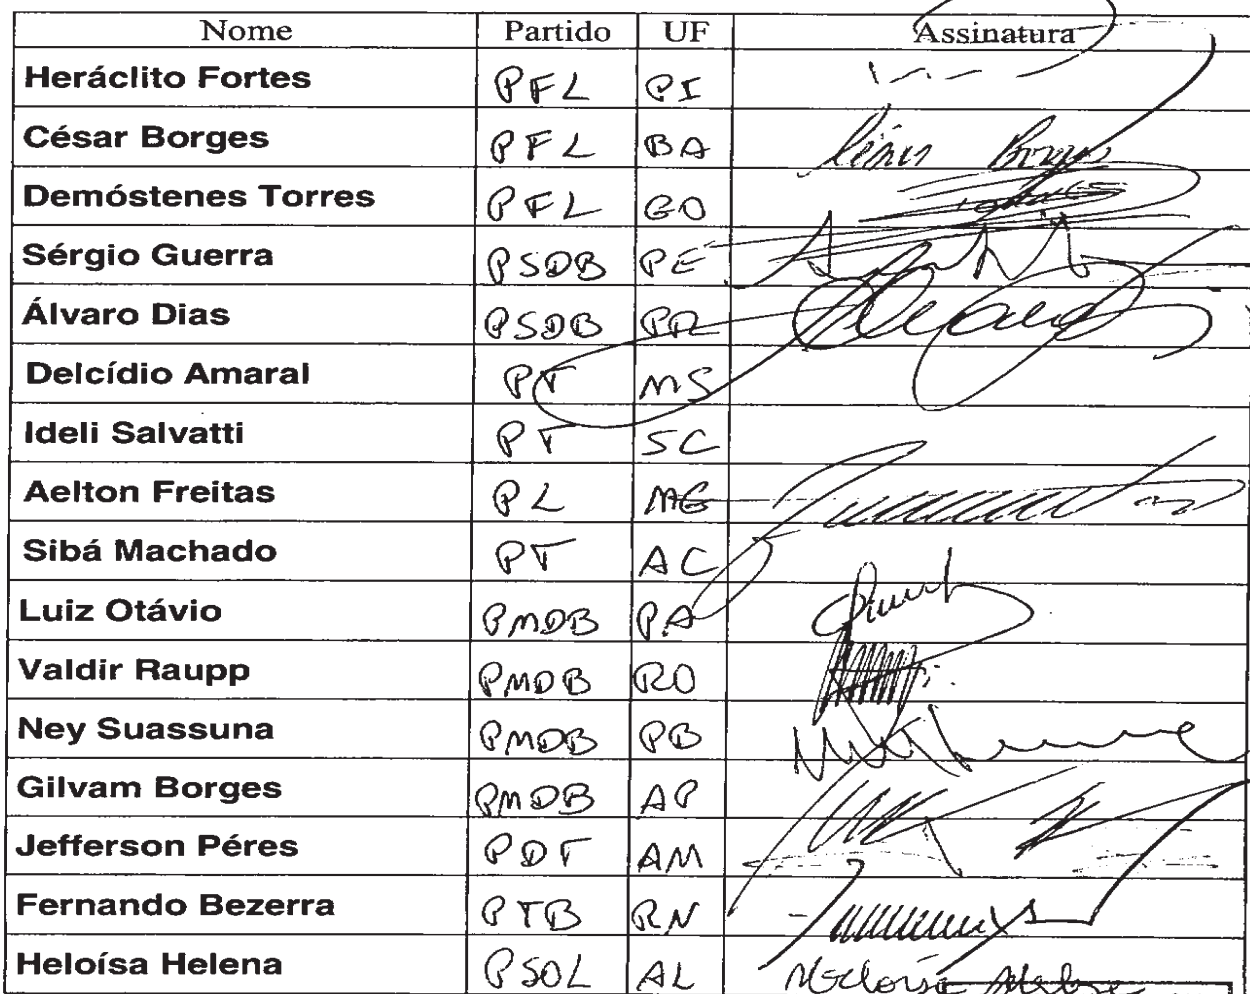 Nome Partido UF Assinatura
Heráclito Fortes PFL PI
César Borges PFL BA César Borges
Demóstenes Torres PFL GO
Sérgio Guerra PSDB PE
Álvaro Dias PSDB PR
Delcídio Amaral PT MS
Ideli Salvatti PT SC
Aelton Freitas PL MG
Sibá Machado PT AC
Luiz Otávio PMDB PA
Valdir Raupp PMDB RO
Ney Suassuna PMDB PB
Gilvam Borges PMDB AP
Jefferson Péres PDT AM
Fernando Bezerra PTB RN
Heloísa Helena PSOL AL Heloísa Helena